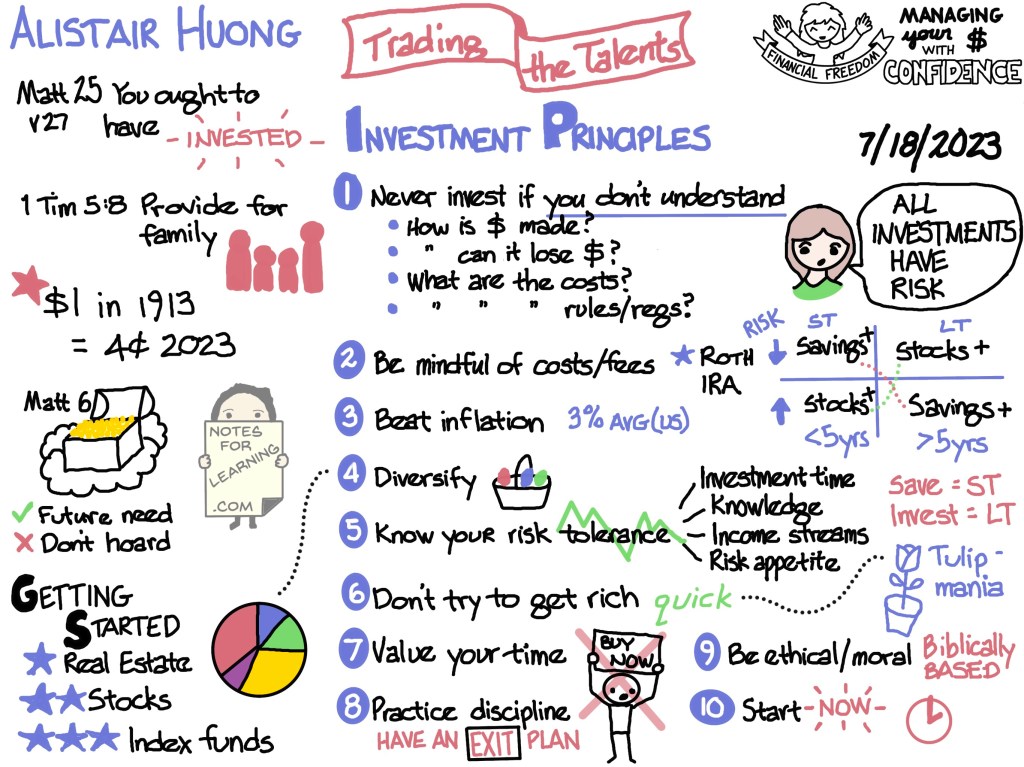 ALISTAIR HUONG
Trading
the Talents
FINANCIAL FREEDOM
MANAGING
your $
WITH
CONFIDENCE
7/18/2023
Matt 25 You ought to
v27 have
- INVESTED -
1 Tim 5:8 Provide for
family
$1 in 1913
= 4¢ 2023
Matt 6
Future need
Don't hoard
NOTES
FOR
LEARNING
.COM
GETTING
STARTED
Real Estate
Stocks
Index funds
INVESTMENT PRINCIPLES
1 Never invest if you don't understand
How is $ made?
" can it lose $?
What are the costs?
" " " rules/regs?
ALL
INVESTMENTS
HAVE
RISK
2 Be mindful of costs/fees
ROTH
IRA
RISK
ST
LT
Savings+
Stocks +
Stocks+
Savings+
<5yrs
>5yrs
3 Beat inflation 3% AVG (US)
4 Diversify
5 Know your risk tolerance
Investment time
Knowledge
Income streams
Risk appetite
Save = ST
Invest = LT
6 Don't try to get rich quick
Tulip-
mania
7 Value your time
BUY
NOW
8 Practice discipline
HAVE AN EXIT PLAN
9 Be ethical/moral Biblically
BASED
10 Start - NOW -